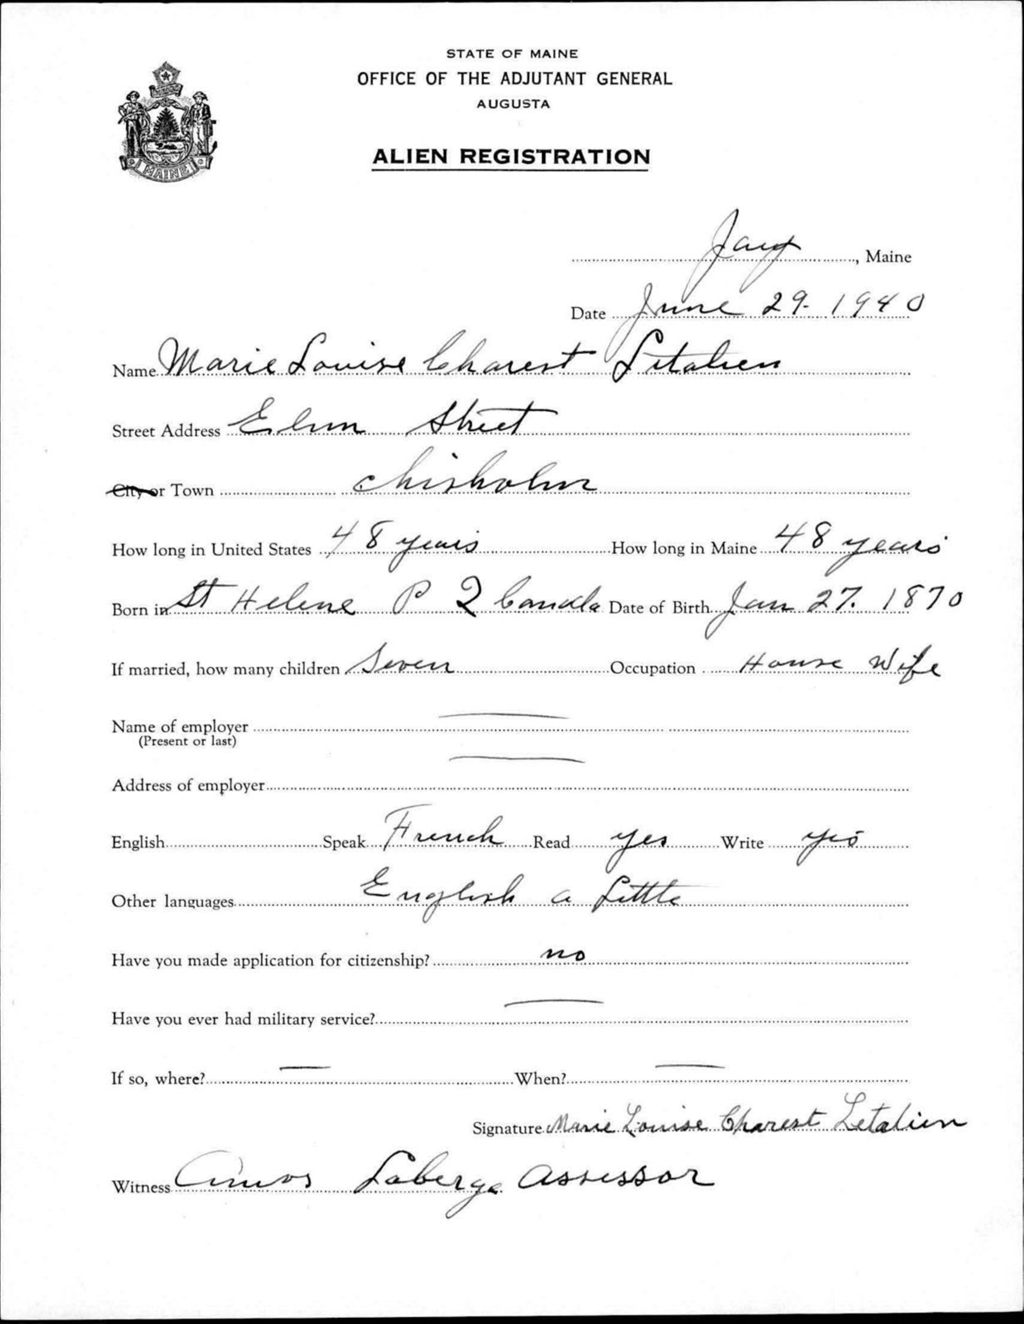 STATE OF MAINE
OFFICE OF THE ADJUTANT GENERAL
AUGUSTA
MAINE
ALIEN REGISTRATION
Jay, Maine
Date June 29. 1940
Name Marie Louise Charest Letalien
Street Address Elm Street
City or Town Chisholm
How long in United States 48 years How long in Maine 48 years
Born in St Helene P Q Canada Date of Birth Jan 27. 1870
If married, how many children Seven Occupation House Wife
Name of employer
(Present or last)
Address of employer
English Speak French Read yes Write yes
Other languages English a Little
Have you made application for citizenship? no
Have you ever had military service?
If so, where? When?
Signature Marie Louise Charest Letalien
Witness Amos Laberge Assessor